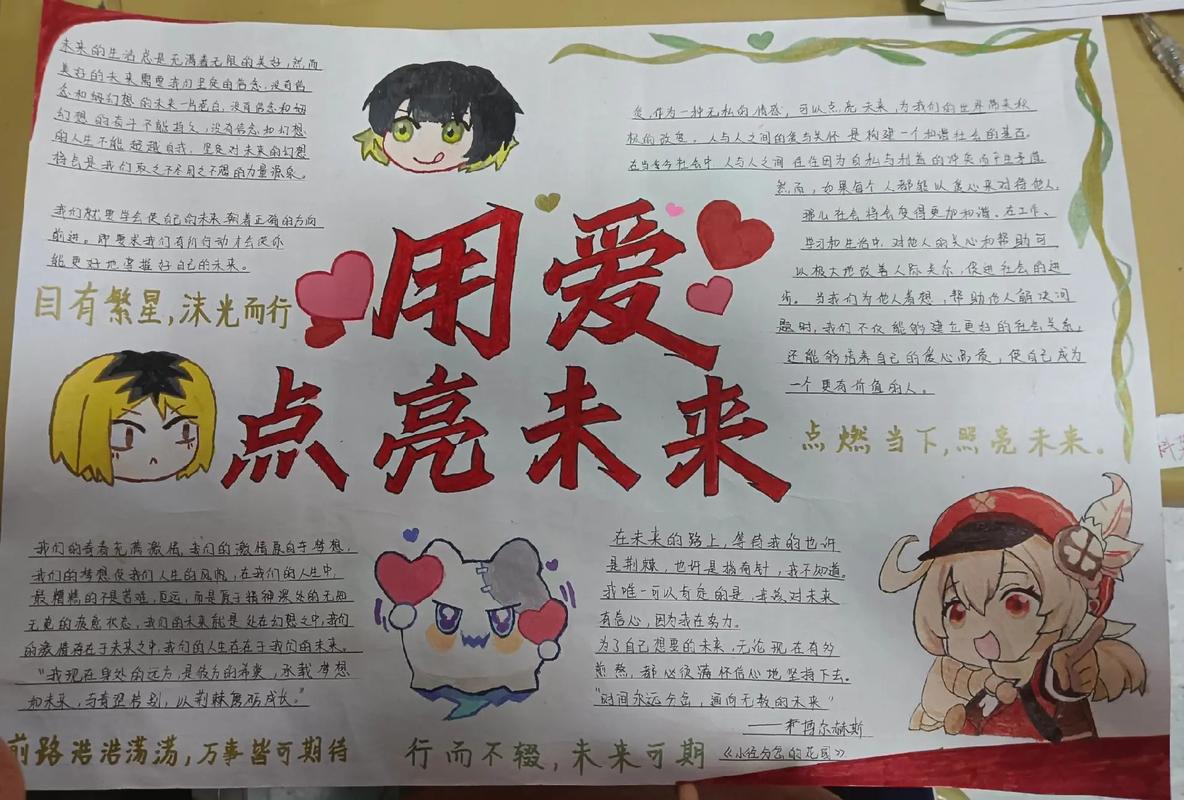 未来的生活总是充满着无限的美好,然而
美好的未来需要我们坚定的信念,没有信
念和幻想的未来一片苍白,没有信念和
幻想的春子不能持久,没有信念和幻想
的人生不能超越自我,坚定对未来的幻想
将会是我们取之不尽用之不竭的力量源泉。
我们就要学会使自己的未来朝着正确的方向
前进。即要求我们有所行动才会使你
能更好地掌握好自己的未来。
目有繁星,沫光而行
用爱
点亮未来
爱,作为一种无私的情感,可以点亮未来,为我们的世界带来积
极的改变。人与人之间的爱与关怀是构建一个和谐社会的基石。
在当今社会中,人与人之间往往因为自私与利益的冲突而产生矛盾
然而,如果每个人都能以爱心来对待他人,
那么社会将会变得更加和谐。在工作、
学习和生活中,对他人的关心和帮助可
以极大地改善人际关系,促进社会的进
步。当我们为他人着想,帮助他人解决问
题时,我们不仅能够建立更好的社会关系,
还能够培养自己的爱心高度,使自己成为
一个更有价值的人。
点燃当下,照亮未来。
我们的青春充满激情,我们的激情原自于梦想,
我们的梦想使我们人生的风帆,在我们的人生中,
最糟糕的不是苦难,厄运,而是质于精神深处的无知
无觉的疲惫状态,我们的未来都是处在幻想之中,我们
的激情存在于未来之中,我们的人生存在于我们的未来。
"我现在身处的远方,是彼方的希冀,承载梦想
如未来,与青涩告别,以荆棘磨砺成长。"
前路浩浩荡荡,万事皆可期待
在未来的路上,等待我的也许
是荆棘,也许是指南针,我不知道。
我唯一可以肯定的是,我该对未来
有信心,因为我在努力。
为了自己想要的未来,无论现在有多
煎熬,都必须满怀信心地坚持下去。
"时间永远分岔,通向无数的未来"
——博尔赫斯
《小径分岔的花园》
行而不辍,未来可期